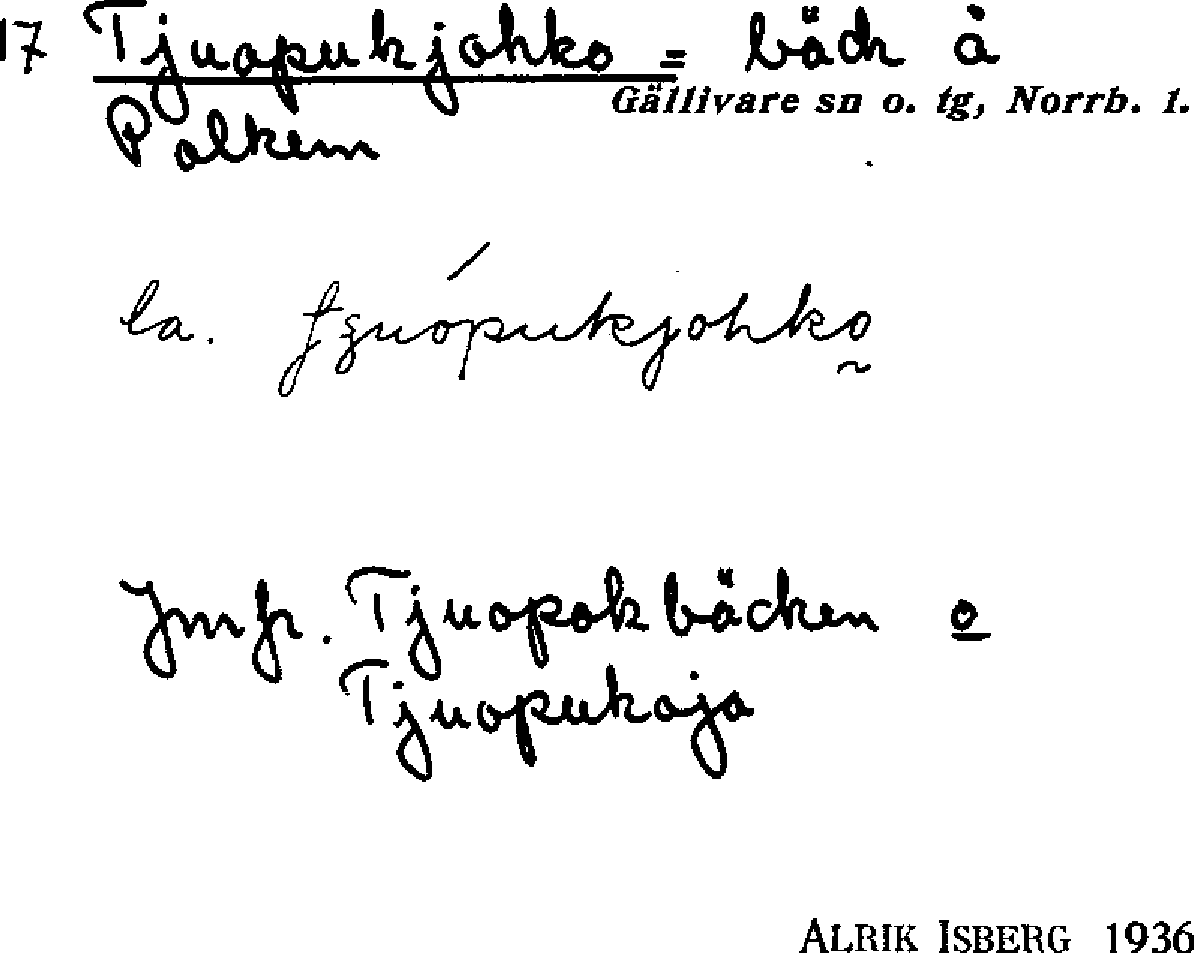 17 Tjuopukjohko = bäck å
Gällivare sn o. tg, Norrb. l.
Polkem
la. tʒuópukjohko
Jmfr. Tjuopokbäcken o
Tjuopukaja
ALRIK ISBERG 1936